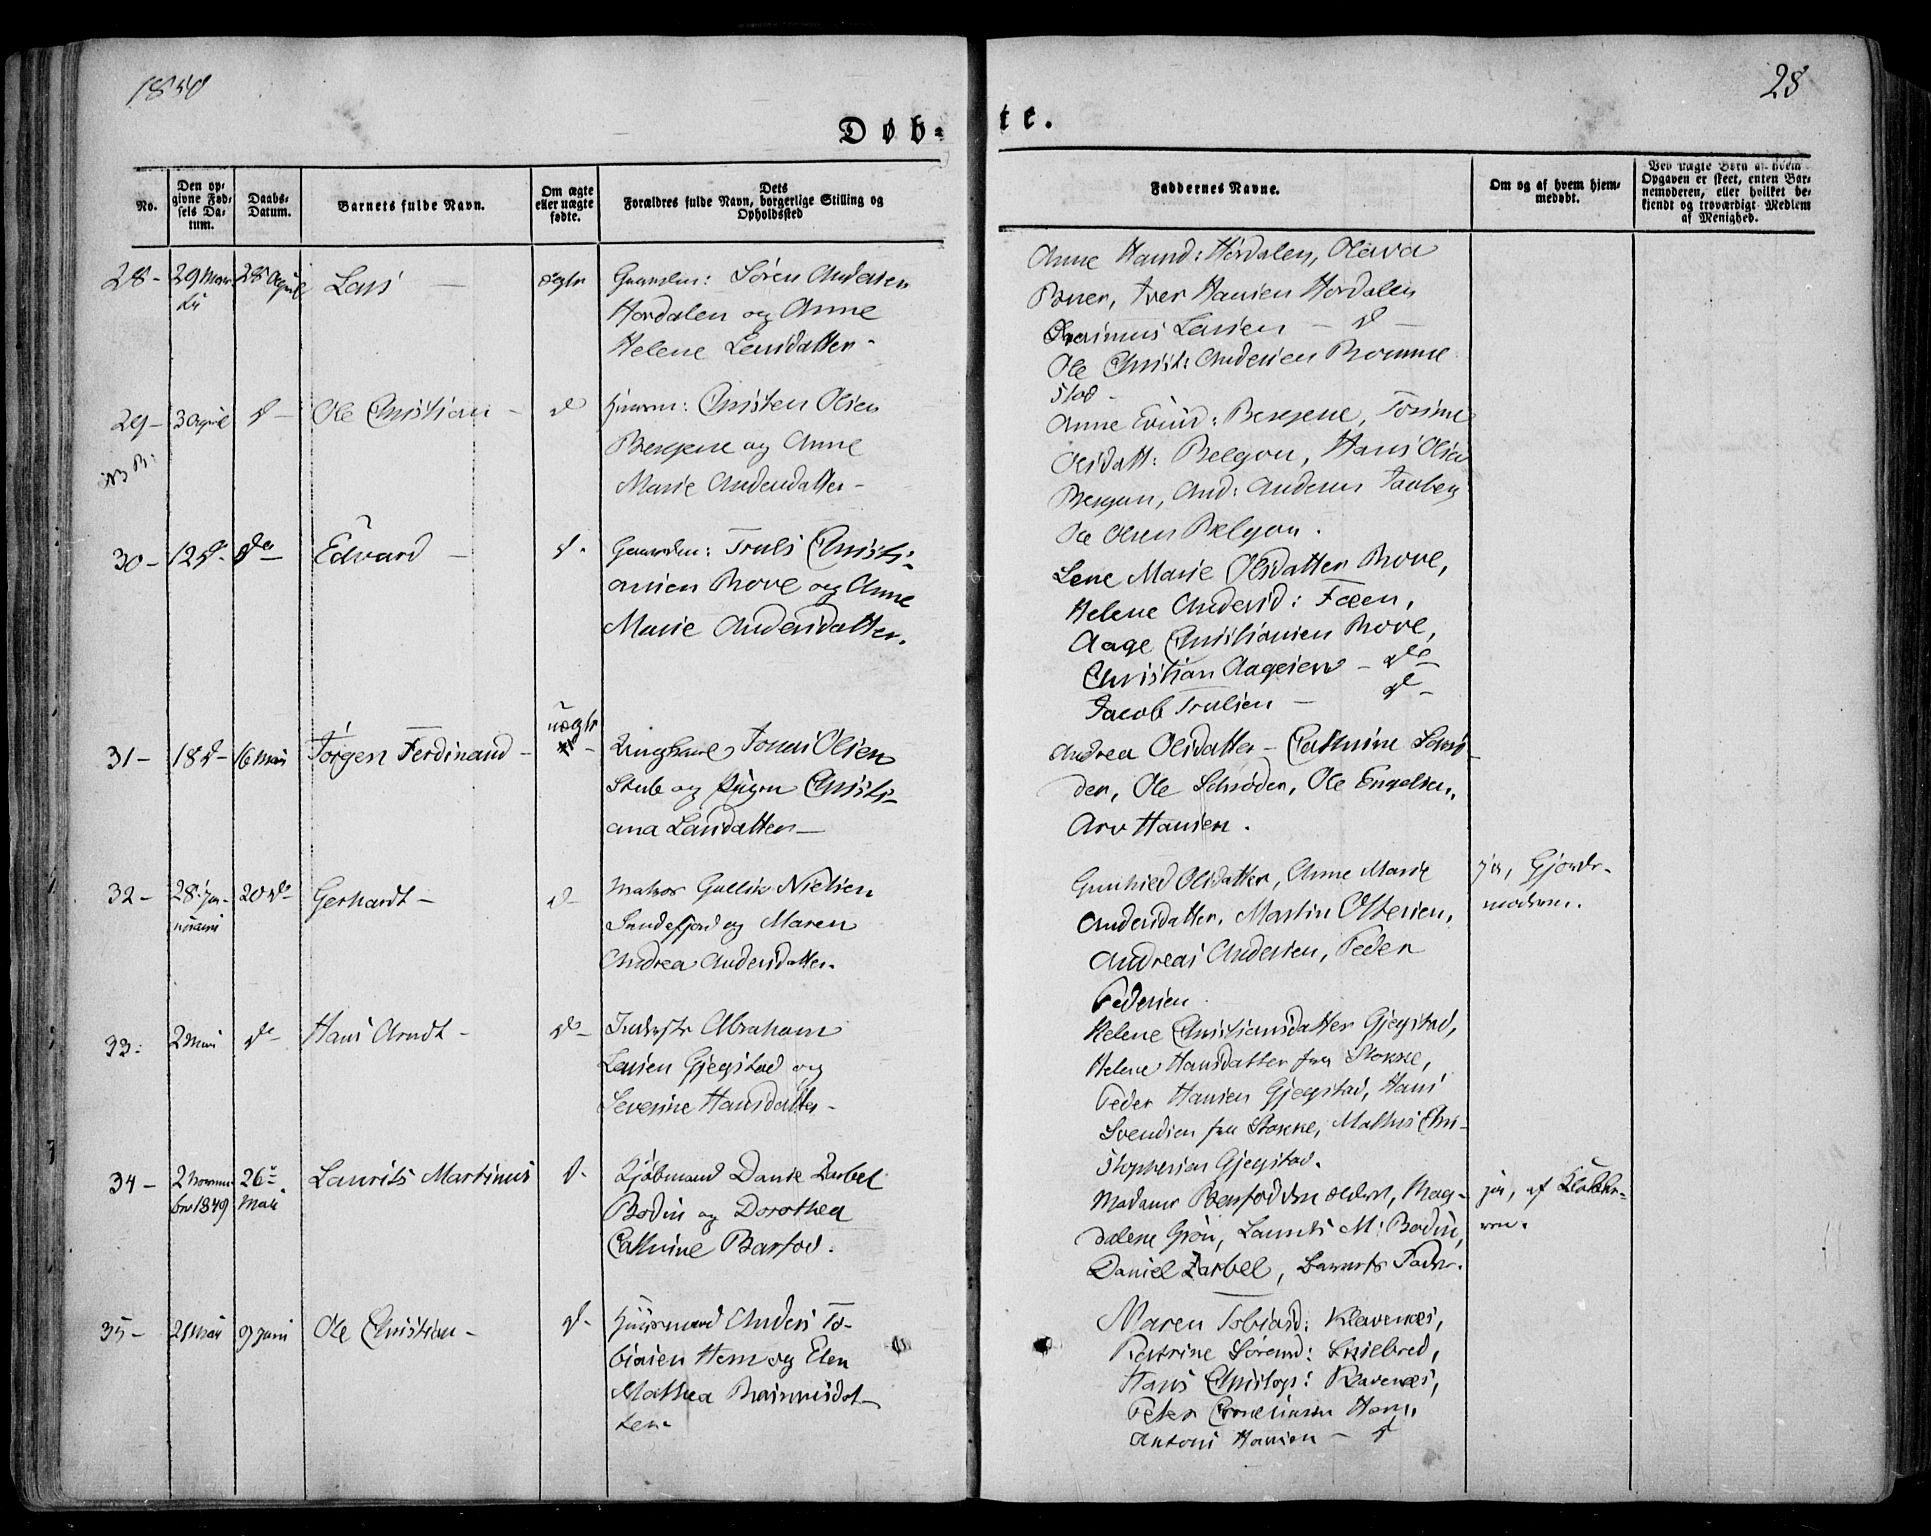 1850
28
Døb-
te.
No.
Den op-
givne Fød-
sels Da-
tum.
Daabs-
Datum.
Barnets fulde Navn.
Om ægte
eller uægte
fødte.
Dets
Forældres fulde Navn, borgerlige Stilling og
Opholdssted
Faddernes Navne.
Om og af hvem hjem-
medøbt.
Ved uægte Børn af hvem
Opgaven er skeet, enten Bar-
nemoderen, eller hvilket be-
kjendt og troværdigt Medlem
af Menighed.
28- 29 Mar- 28 April Lars — ægte Gaardm: Søren Andersen
Hordalen og Anne
Helene Larsdatter-
Anne Hansd: Hordalen, Olava
Iver Hansen Hordalen
Larsen — d —
Ole Christ: Andersen Bomme
stad -
29- 3 April d- Ole Christian - d Huusm: Christen Olsen
Bergene og Anne
Marie Andersdatter-
Anne Bergene,
Olsdatt: Bolgen, Hans Olsen
And: Anders
Ole Olsen
30- 12 d- do Edvard — d- Gaardm: Truls Christi-
ansen Bove og Anne
Marie Andersdatter.
Lene Marie Olsdatter Bove,
Helene Andersd: Foxen,
Aage Christiansen Bove,
Christian Aagesen - do
Jacob Trulsen — d-
31- 18 d- 16 Mai Jørgen Ferdinand - uægte Ungkarl Jonas Olsen
Stub og Pigen Christi-
ana Larsdatter—
Andrea Olsdatter - Cathrine Schrø-
der, Ole Schrøder, Ole Engelsen,
Arv Hansen.
32- 28 Ja-
nuari 20 do Gerhardt - d- Matros Gullik Nielsen
Sandefjord og Maren
Andrea Andersdatter.
Gunhild Olsdatter, Anne Marie
Andersdatter, Martin Ottersen,
Andreas Andersen, Peder
Pedersen
ja, Gjorde-
moderen.
33: 2 Mai do Hans Arndt - do- Inderste Abraham
Larsen Gjegstad og
Severine Hansdatter-
Helene Christiansdatter Gjegstad,
Helene Hansdatter fra Stokke,
Peder Hansen Gjegstad, Hans
Svendsen fra Stokke, Mathis Chri-
stophersen Gjegstad.
34- 2 Novem-
ber 1849 26
Mai Laurits Martinus d- Kjøbmand Daniel Zarbel
Bødin og Dorothea
Cathrine Barfod.
Madame Barfod den ældre, Mag-
dalene Grøn, Laurits M: Bødin,
Daniel Zarbel, Barnets Fader.
ja, af Klokke-
ren.
35- 21 Mai 9 Juni Ole Christian- d- Huusmand Anders To-
biasen Hem og Elen
Mathea
ter-
Maren Tobiasd: Klavenæs,
Katrine Sørensd:
Hans Christoph: Klavenæs,
Peter Hem,
Antoni Hansen — d